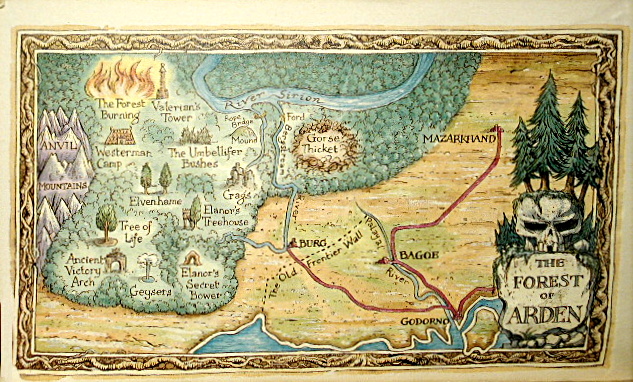 The Forest
Burning
Valerian's
Tower
River Sirion
Rope
Bridge
Ford
Mound
Gorse
Thicket
MAZARKHAND
ANVIL
MOUNTAINS
Westerman
Camp
The Umbellifer
Bushes
Elvenhame
Crags
River
Elanor's
Treehouse
Tree of
Life
BURG
The Old Frontier Wall
BAGOE
River
Ancient
Victory
Arch
Geysers
Elanor's
Secret
Bower
GODORNO
THE
FOREST
OF
ARDEN